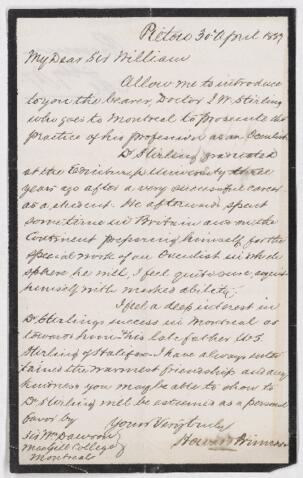 Pictou 30th April 1887
My Dear Sir William
Allow me to introduce
to you the bearer, Doctor J. W. Stirling
who goes to Montreal to prosecute the
practice of his profession as an Oculist.
Dr Stirling graduated
at the Edinburgh University three
years ago after a very successful career
as a student. He afterwards spent
sometime in Britain and on the
Continent preparing himself for the
special work of an Oculist in which
sphere he will, I feel quite sure, acquit
himself with marked ability.
I feel a deep interest in
Dr Stirling's success in Montreal as
towards his late father W S
Stirling of Halifax I have always enter
tained the warmest friendship and any
kindness you may be able to show to
Dr Stirling will be esteemed as a personal
favor by Yours Very truly
Sir Wm Dawson Howard Primrose
McGill College
Montreal